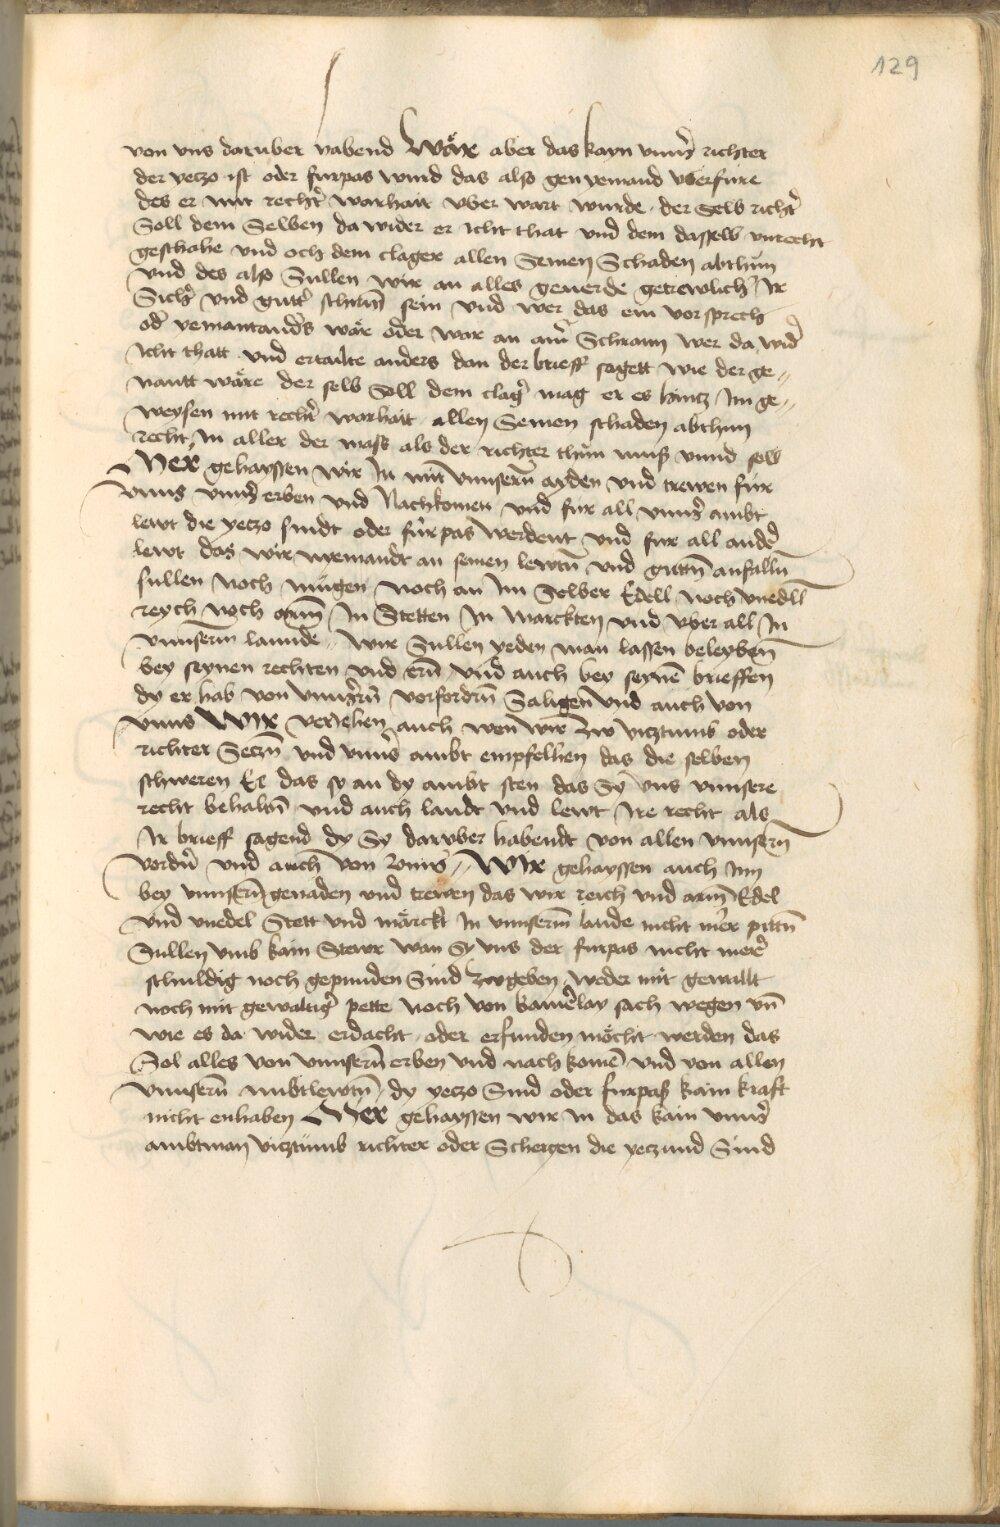 129
von vns daruber habend Wär aber das kayn vnnser richter
der yeczo ist oder furpas wurd das also gen yemand vberfure
des er mit rechter warhait vber wart wurde der Selb richter
Soll dem Selben da wider er icht that vnd dem dasselb vnrecht
geschahe vnd och dem clager allen Seinen Schaden abthun
vnd des also Sullen wir an alles geuerde getrewlich Ir
vnd gutt schirm sein vnd wer das ein vorsprech
oder yemantanders wär oder war an ainer Schrann wer da wider
icht thatt vnd ertailte anders dan der brieff sagett wie der ge„
nantt wäre der selb Soll dem clager mag er es hintz Im ge„
weysen mit rechter warhait allen Seinen schaden abthun
recht In aller der mass als der richter thun muss vnnd sol
Mer gehayssen wir In mit vnnsern ayden vnd trewen für
vnns vnnser erben vnd Nachkomen vnd für all vnnser ambt
lewt die yeczo sindt oder fürpas werdent vnd fur all ander
lewt das wir nyemandt an seinen lewtn vnd guttn anfalln
sullen noch mügen noch an Im Selber Edell noch vnedll
reych noch arm In Stetten In Marckten vnd vber all In
vnnserm lannde„ Wir Sullen yeden man lassen beleyben
bey seynen rechten vnd ern vnd auch bey seynen brieffen
dy er hab von vnnsern vorfordrn Saligen vnd auch von
vnns Wir veriehen auch wen wir Zw vicztumb oder
richter Seczn vnd vnnser ambt empfelhen das die selben
schweren Ee das sy an dy ambt sten das Sy vns vnnsere
recht behalten vnd auch landt vnd lewt Ire recht als
Ir brieff sagend dy Sy daruber habendt von allen vnnsern
vordern vnd auch von vnns„ Wir gehayssen auch Inn
bey vnnsern genaden vnd trewen das wir reich vnd arm Edel
vnd vnedel Stett vnd märckt In vnnserm lande nicht mer pittn
Sullen vmb kain Stewr wan Sy vns der furpas nicht mere
schuldig noch gepunden Sind Zwgeben weder mit gewallt
noch mit gewaltiger pette noch von kainerlay sach wegen vnd
wie es da wider erdacht oder erfunden möcht werden das
Sol alles von vnnsern erben vnd nachkomen vnd von allen
vnnsern ambtlewtn dy yeczo Sind oder furpass kain kraft
nicht enhaben Mer gehayssen wir In das kain vnnser
ambtman vicztumb richter oder Schergen die yeczund Sind